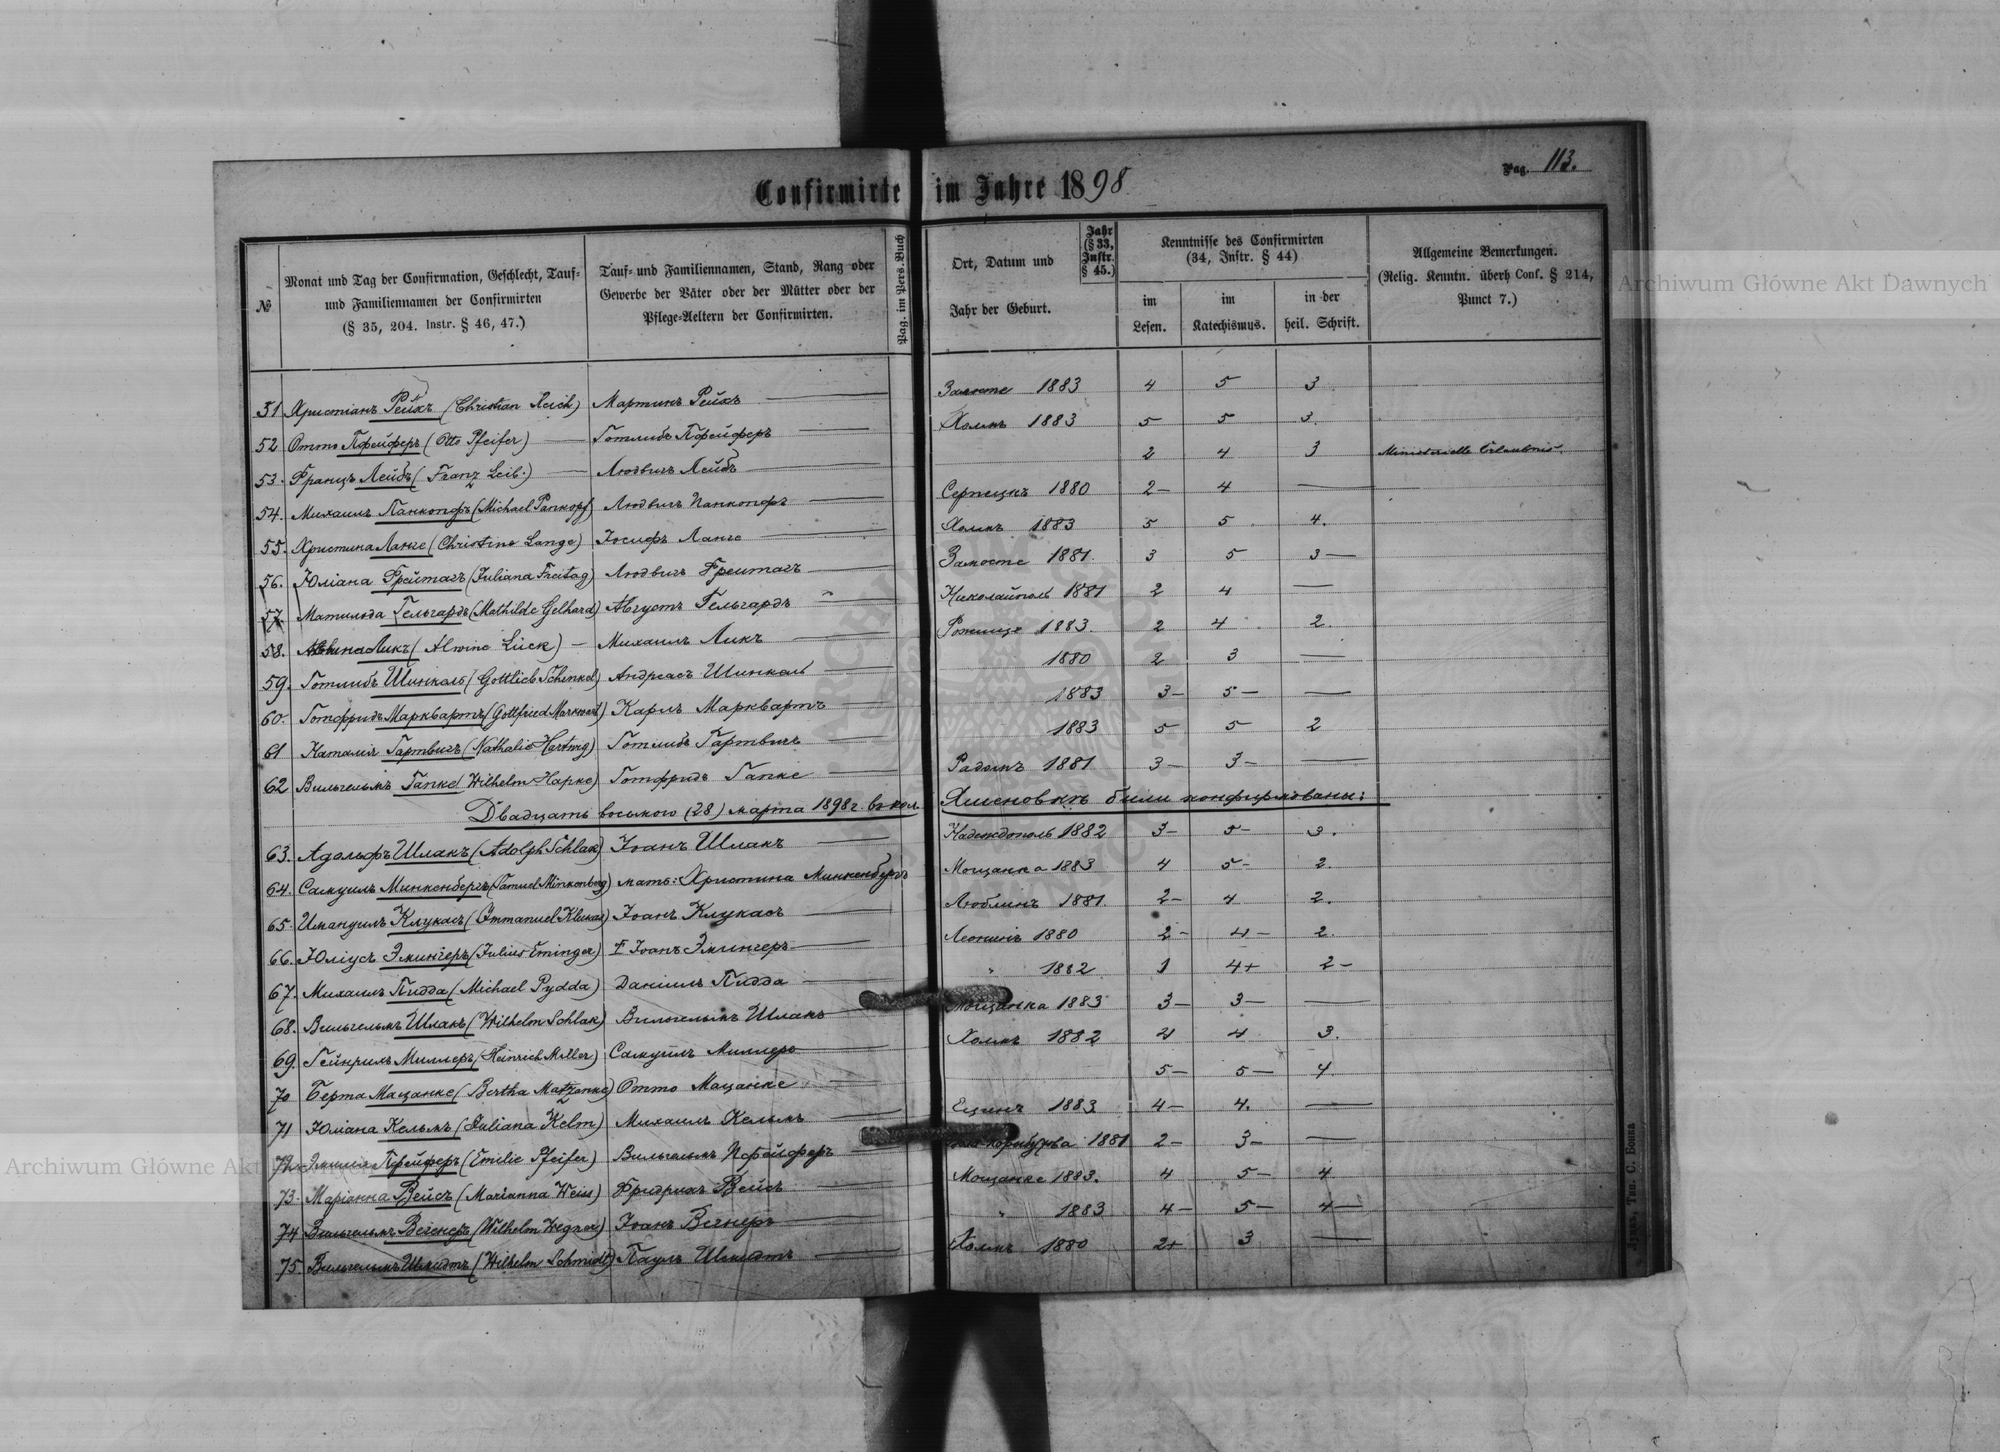 Pag. 113.
Confirmirte im Jahre 1898
№
Monat und Tag der Confirmation, Geschlecht, Tauf-
und Familiennamen der Confirmirten
(§ 35, 204. Instr. § 46, 47.)
Tauf- und Familiennamen, Stand, Rang oder
Gewerbe der Väter oder der Mütter oder der
Pflege-Aeltern der Confirmirten.
Pag. im Pers.-Buch
Ort, Datum und
Jahr der Geburt.
Jahr
(§ 33,
Instr.
§ 45.)
Kenntnisse des Confirmirten
(34, Instr. § 44)
im
Lesen.
im
Katechismus.
in der
heil. Schrift.
Allgemeine Bemerkungen.
(Relig. Kenntn. überh Conf. § 214,
Punct 7.)
51 Христіанъ Рейхъ (Christian Reich) Мартинъ Рейхъ — Замосте 1883 4 5 3
52 Отто Пфейферъ (Otto Pfeifer) — Готлибъ Пфейферъ — Холмъ 1883 5 5 3.
53. Францъ Лейбъ (Franz Leib.) — Людвигъ Лейбъ — 2 4 3 Ministerielle Erlaubnis.
54. Михаилъ Панкопфъ (Michael Pankopf) Людвигъ Панкопфъ — 1880 2 — 4 —
55. Христина Ланге (Christine Lange) Іосифъ Ланге — Холмъ 1883 5 5 4.
56. Юліана Фрейтагъ (Juliana Freitag) Людвигъ Фрейтагъ — Замосте 1881. 3 5 3 —
57. Матильда Гельгардъ (Mathilde Gelhard) Августъ Гельгардъ Николайполь 1881 2 4 —
58. Альвина Ликъ (Alwine Lück) — Михаилъ Ликъ — Рожище 1883. 2 4 2.
59. Готлибъ Шинкель (Gottlieb Schenkel) Андреасъ Шинкель — 1880 2 3 —
60. Готфридъ Марквартъ (Gottfried Markwart) Карлъ Марквартъ — 1883 3 — 5 — —
61 Наталія Гартвигъ (Nathalie Hartwig) Готлибъ Гартвигъ — 1883 5 5 2
62 Вильгельмъ Гапке (Wilhelm Hapke) Готфридъ Гапке — Радомъ 1881 3 — 3 — —
Двадцать восьмого (28) марта 1898 г. въ кол. были конфирмованы:
63. Адольфъ Шлакъ (Adolph Schlak) Іоанъ Шлакъ — Надеждополь 1882 3 — 5 — 3.
64. Самуилъ Минкенбергъ (Samuel Minkenberg) мать: Христина Минкенбергъ Мощанка 1883 4 5 — 2.
65. Имануилъ Клукасъ (Emmanuel Klukas) Іоанъ Клукасъ — Люблинъ 1881. 2 — 4 2.
66. Юліусъ Эмингеръ (Julius Eminger) † Іоанъ Эмингеръ — 1880 2 — 4 — 2.
67. Михаилъ Пидда (Michael Pydda) Даніилъ Пидда — " 1882 1 4+ 2 —
68. Вильгельмъ Шлакъ (Wilhelm Schlak) Вильгельмъ Шлакъ — Мощанка 1883 3 — 3 — —
69. Гейнрихъ Миллеръ (Heinrich Miller) Самуилъ Миллеръ — Холмъ 1882 4 4 3.
70 Берта Мацанке (Bertha Matzanke) Отто Мацанке — 5 — 5 — 4
71 Юліана Кельмъ (Juliana Kelm) Михаилъ Кельмъ — 1883 4 — 4. —
72. Эмилія Пфейферъ (Emilie Pfeifer) Вильгельмъ Пфейферъ — 1881 2 — 3 — —
73. Маріанна Вейсъ (Marianna Weiss) Фридрихъ Вейсъ — Мощанке 1883. 4 5 — 4
74 Вильгельмъ Вегнеръ (Wilhelm Wegner) Іоанъ Вегнеръ — " 1883 4 — 5 — 4 —
75 Вильгельмъ Шмидтъ (Wilhelm Schmidt) Паулъ Шмидтъ — Холмъ 1880 2+ 3 —
Archiwum Główne Akt Dawnych
Archiwum Główne Akt